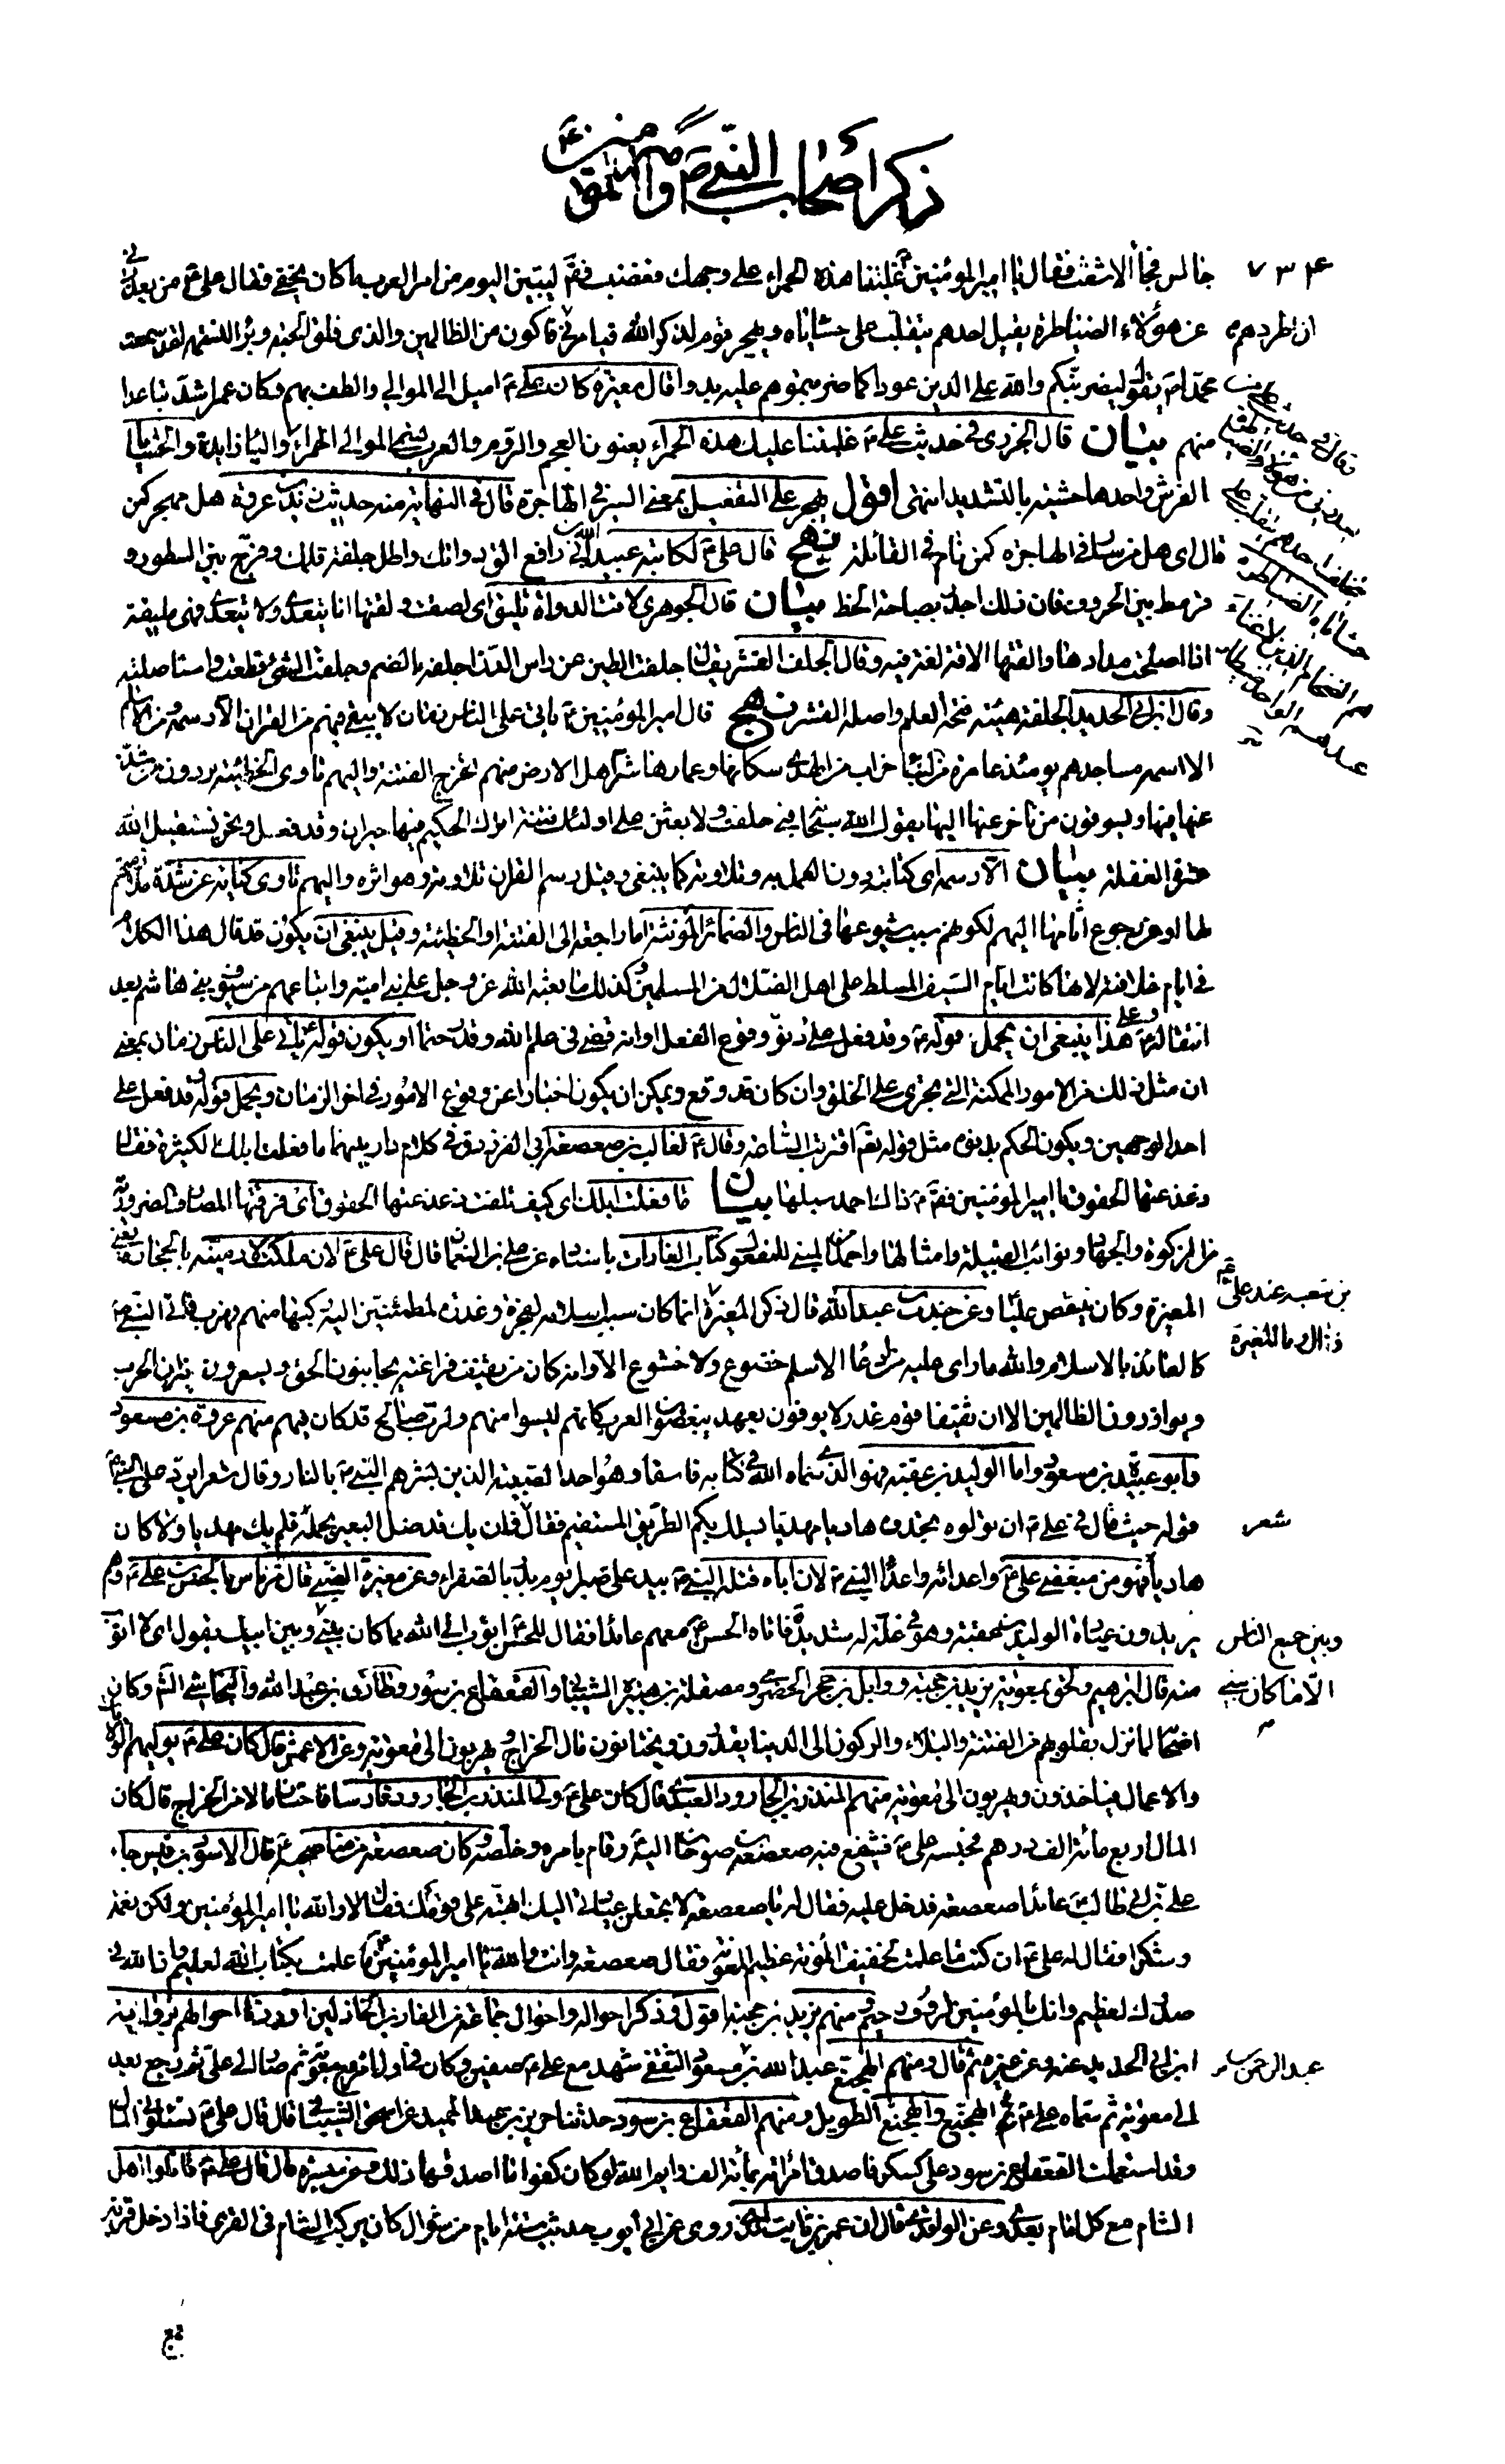 ذكر أصحاب النبي ص وأمير المؤمنين ع
٧٣٤
جالس فجاء الاشعث فقال يا امير المؤمنين غلبتنا هذه الحمراء على وجهك فغضب فقال ليبين اليوم من امر العرب ما كان يخفى فقال على ع من يعذرني
من هؤلاء الضياطرة يقيل احدهم يتقلب على حشاياه ويهجر قوم لذكر الله فيامرني ان اطردهم فاكون من الظالمين والذى فلق الحبة وبرأ النسمة لقد سمعت
محمدا ص يقول ليضربنكم والله على الدين عودا كما ضربتموهم عليه بدوا قال مغيرة كان على ع اميل الى الموالي والطف بهم وكان عمر اشد تباعدا
منهم بيان قال الجزرى فى حديث على ع غلبتنا عليك هذه الحمراء يعنون العجم والروم والعرب تسمى الموالى الحمراء والياء زايدة والحشايا
الفرش واحدها حشية بالتشديد انتهى اقول يهجر على التفعيل بمعنى السير فى الهاجرة قال فى النهاية منه حديث زيد بن عمرو هل مهجر كمن
قال اى هل من سار فى الهاجرة كمن نام فى القائلة نهج قال على ع لكاتبه عبيد الله بن ابى رافع الق دواتك واطل جلفة قلمك وفرج بين السطور و
قرمط بين الحروف فان ذلك اجدر بصباحة الخط بيان قال الجوهرى لاقت الدواة تليق اى لصقت ولقتها انا يتعدى ولا يتعدى فهى مليقة
اذا اصلحت مدادها والقتها الاقة لغة فيه وقال الجلف القشر يقال جلفت الطين عن راس الدن اجلفه بالضم وجلفت الشئ قطعته واستاصلته
وقال ابن ابى الحديد الجلفة هيئة فتحة القلم واصله القشر نهج قال امير المؤمنين ع ياتى على الناس زمان لا يبقى فيهم من القران الا رسمه ومن الاسلام
الا اسمه مساجدهم يومئذ عامرة من البنا خراب من الهدى سكانها وعمارها شر اهل الارض منهم تخرج الفتنة واليهم تاوى الخطيئة يردون من شذ
عنها فيها ويسوقون من تاخر عنها اليها يقول الله سبحانه فبى حلفت لابعثن على اولئك فتنة اترك الحكيم فيها حيران وقد فعل ونحن نستقيل الله
عثرة الغفلة بيان الا رسمه اى كتابته دون العمل به وتلاوته كما ينبغى وقيل رسم القران تلاوته وهو اثره واليهم تاوى كناية عن شدة ملازمتهم
لها او عن رجوع اثامها اليهم لكونهم سبب شيوعها فى الناس والضمائر المؤنثة اما راجعة الى الفتنة او الخطيئة وقيل ينبغى ان يكون قد قال هذا الكلام
فى ايام خلافته لانها كانت ايام السيف المسلط على اهل الضلال من المسلمين وكذلك ما بعثه الله عز وجل على بنى امية واتباعهم من سيوف بنى هاشم بعد
انتقاله ع وعلى هذا ينبغى ان يحمل قوله ع وقد فعل على دنو وقوع الفعل او انه قضى فى علم الله وقدر حتما او يكون قوله ع ياتى على الناس زمان بمعنى
ان مثل ذلك من الامور الممكنة التى تجرى على الخلق وان كان قد وقع ويمكن ان يكون اخبارا عن وقوع الامور فى اخر الزمان ويحمل قوله قد فعل على
احد الوجهين ويكون الحكم بدنوه مثل قوله تعالى اقتربت الساعة وقال ع لغالب بن صعصعة ابى الفرزدق فى كلام دار بينهما ما فعلت ابلك الكثيرة فقال
ذعذعتها الحقوق يا امير المؤمنين فقال ع ذاك احمد سبلها بيان ما فعلت ابلك اى كيف تلفت ذعذعتها الحقوق اى فرقتها المصارف الضرورية
من الزكوة والجهاد ونوائب القبيلة وامثالها واحمد السبيل كتاب الغارات باسناده عن على بن النعمان قال قال على ع لان ملكت لارمينه بالحجارة يعنى
المغيرة وكان ينقص عليا وعن جندب بن عبد الله قال ذكر المغيرة بن شعبة عند على ع وما المغيرة انما كان سبب اسلامه لفجرة وغدرة لمطمئنين اليه ركبها منهم فهرب فاتى النبى ص
كالعائذ بالاسلام والله ما راى عليه منذ ادعا الاسلام خضوع ولا خشوع الا وانه كان من ثقيف فراعنة يجانبون الحق ويسعرون نيران الحرب
ويوازرون الظالمين الا ان ثقيفا قوم غدر لا يوفون بعهد يبغضون العرب كانهم ليسوا منهم ولرب صالح قد كان فيهم منهم عروة بن مسعود
وابو عبيد بن مسعود واما الوليد بن عقبة فهو الذى سماه الله فى كتابه فاسقا وهو احد الصبية الذين بشرهم النبى ص بالنار وقال شعرا يرد على النبى ص
شعر
قوله حيث قال فى على ع ان تولوه تجدوه هاديا مهديا يسلك بكم الطريق المستقيم فقال فان يك قد ضل البعير بحمله فلم يك مهديا ولا كان
هاديا فهو من مبغضى على ع واعدائه واعداء النبى ص لان اباه قتله النبى ص بيد على صبرا يوم بدر بالصفراء وعن مغيرة الضبى قال مر ناس بالحسن بن على ع وهم
يريدون عيادة الوليد بن عقبة وهو فى علة له شديدة فاتاه الحسن ع معهم عائدا فقال للحسن اتوب الى الله مما كان بينى وبين جميع الناس الا ما كان بينى وبين ابيك يقول اى لا اتوب
منه قال ابرهيم ولحق بمعوية يزيد بن حجية ووايل بن حجر الحضرمى ومصقلة بن هبيرة الشيبانى والقعقاع بن شور وطارق بن عبد الله والنجاشى الشاعر وكان
اصحابه لما نزل بقلوبهم من الفتنة والبلاء والركون الى الدنيا يغدرون ويختانون مال الخراج ويهربون الى معوية وعن الاعمش قال كان على ع يوليهم الولاية
والاعمال فياخذون ويهربون الى معوية منهم المنذر بن الجارود العبدى قال كان على ع ولى المنذر بن الجارود فارسا فاحتاز مالا من الخراج قال كان
المال اربع مائة الف درهم فحبسه على ع فشفع فيه صعصعة بن صوحان اليه ع وقام بامره وخلصه وكان صعصعة من مناصحيه ع قال الاسود بن قيس جاء
على بن ابى طالب ع عائدا صعصعة فدخل عليه فقال له يا صعصعة لا تجعلن عيادتى اليك ابهة على قومك فقال لا والله يا امير المؤمنين ولكن نعمة
وشكرا فقال له على ع ان كنت لما علمت لخفيف المؤنة عظيم المعونة فقال صعصعة وانت والله يا امير المؤمنين ما علمت بكتاب الله لعليم وان الله فى
صدرك لعظيم وانك بالمؤمنين لرؤف رحيم ومنهم يزيد بن حجية اقول وذكر احواله واحوال جماعة من الفارين الخاذلين اوردنا احوالهم برواية
ابن ابى الحديد عنه وعن غيره ثم قال ومنهم الهجنع عبد الرحمن بن عبد الله بن مسعود الثقفى شهد مع على ع صفين وكان فى اول امره مع معوية ثم صار الى على ثم رجع بعد
الى معوية ثم سماه على ع الهجنع والهجنع الطويل ومنهم القعقاع بن شور حدثنا جرير بن عبد الحميد عن ابى اسحق الشيبانى قال قال على ع تسئلونى المال
وقد استعملت القعقاع بن شور على كسكر فاصدق امرأة بمائة الف وايم الله لو كان كفوا ما اصدقها ذلك وعن ميسرة قال قال على ع قاتلوا اهل
الشام مع كل امام بعدى وعن الواقدى قال ان عمر بن ثابت الذى روى عن ابى ايوب حديث ستة ايام من شوال كان يركب بالشام فى القرى فاذا دخل قرية
جمع